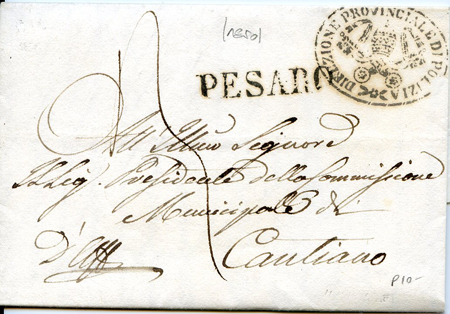 (nero)
DIREZIONE PROVINCIALE DI POLIZIA
PESARO
All' Illmo Signore
Il Sig. Presidente della Commissione
Municipale di
D'Uff
Cantiano
P10-